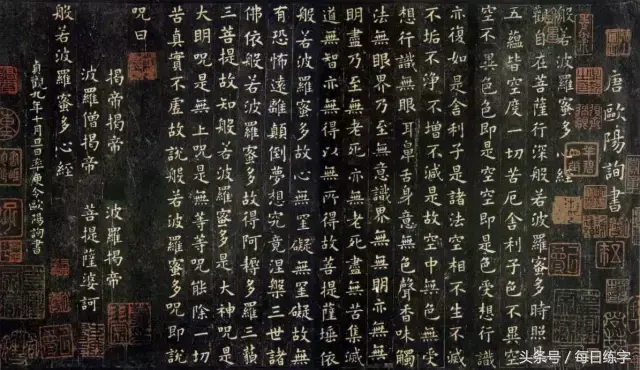 唐歐陽詢書
般若波羅蜜多心經
觀自在菩薩行深般若波羅蜜多時照
五蘊皆空度一切苦厄舍利子色不異空
空不異色色即是空空即是色受想行識
亦復如是舍利子是諸法空相不生不滅
不垢不淨不增不減是故空中無色無受
想行識無眼耳鼻舌身意無色聲香味觸
法無眼界乃至無意識界無無明亦無無
明盡乃至無老死亦無老死盡無苦集滅
道無智亦無得以無所得故菩提薩埵依
般若波羅蜜多故心無罣礙無罣礙故無
有恐怖遠離顛倒夢想究竟涅槃三世諸
佛依般若波羅蜜多故得阿耨多羅三藐
三菩提故知般若波羅蜜多是大神呪是
大明呪是無上呪是無等等呪能除一切
苦真實不虛故說般若波羅蜜多呪即說
呪曰
揭帝揭帝 波羅揭帝
波羅僧揭帝 菩提薩婆訶
般若波羅蜜多心經
貞觀九年十月旦日率更令歐陽詢書
头条号 / 每日练字